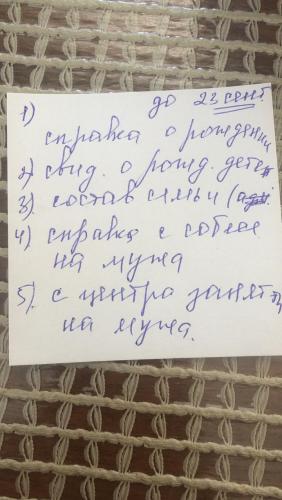 до 23 сент.
1)
справка о рождении
2) свид. о рожд. детей
3) состав семьи (
4) справка с собеса
на мужа
5) с центра занят
на мужа.